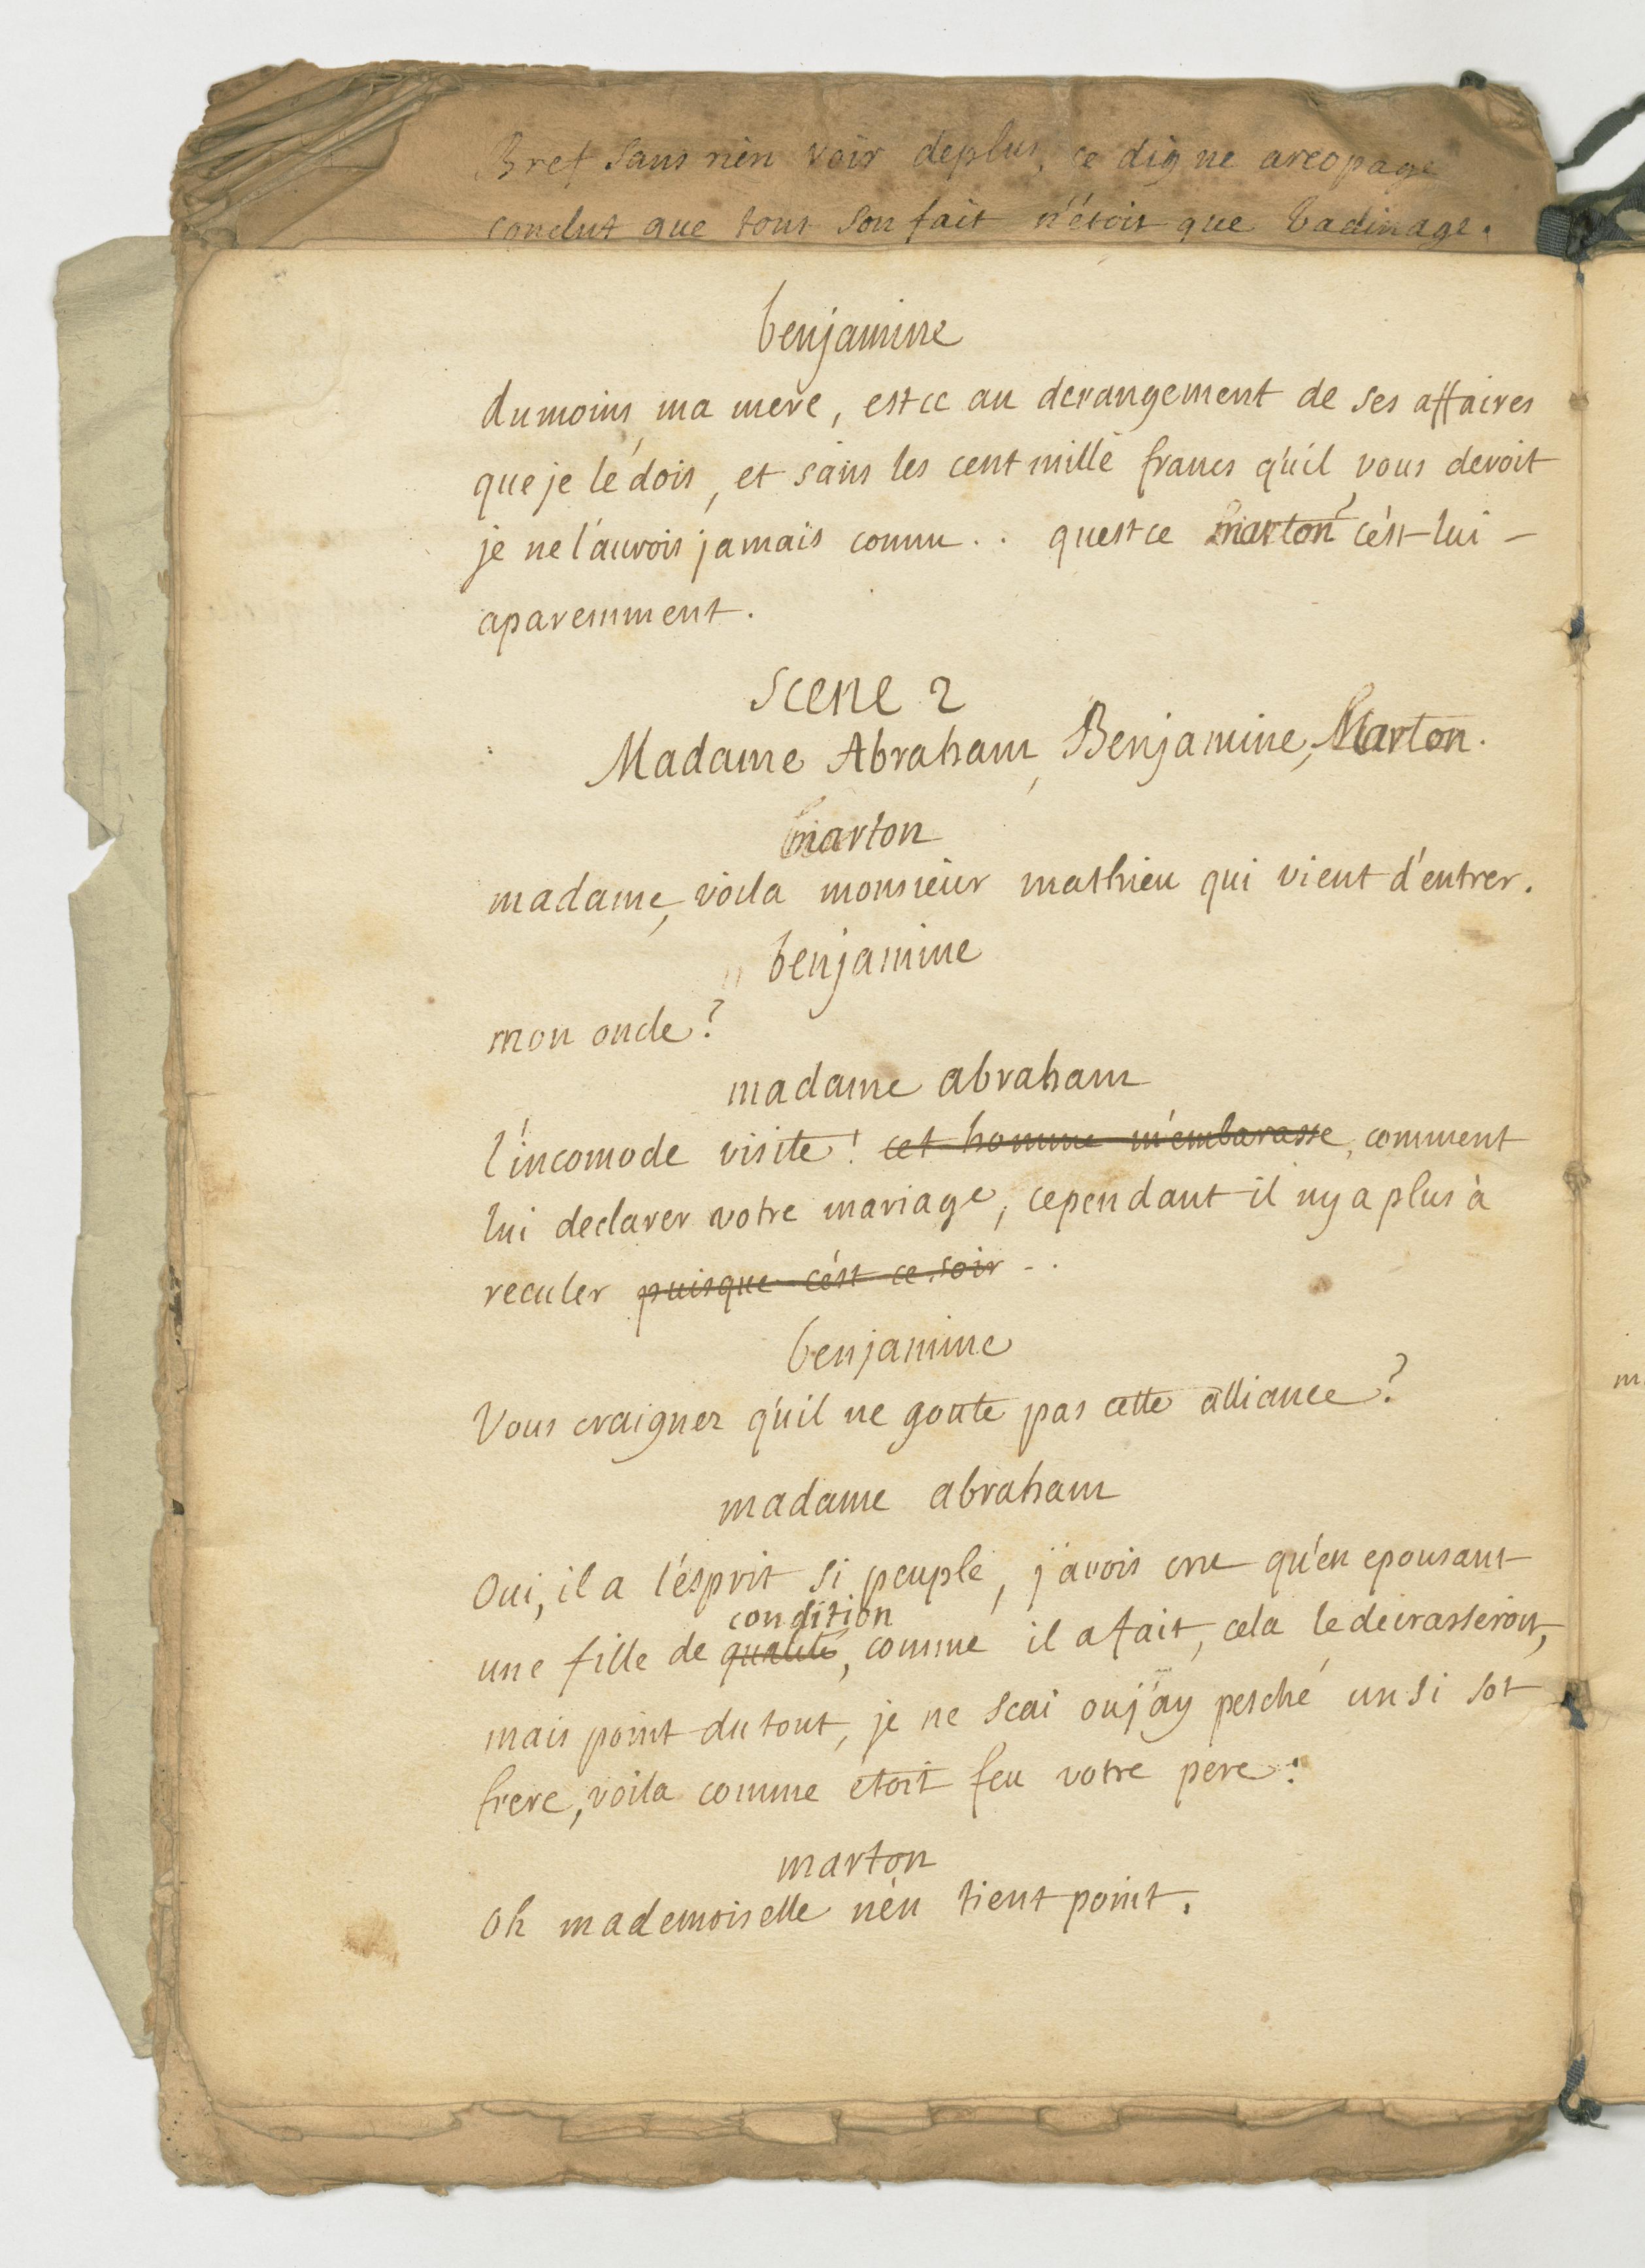 Bref sans rien voir deplus, ce digne areopage
conclut que tout son fait n'étoit que badinage.
benjamine
dumoins, ma mere, estce au derangement de ses affaires
que je le dois, et sans les cent mille francs qu'il vous devoit
je ne l'aurois jamais connu . . quest ce marton? c'est lui -
aparemment.
scene 2
Madame Abraham, Benjamine, Marton.
marton
madame, voila monsieur mathieu qui vient d'entrer.
benjamine
mon oncle?
madame abraham
l'incomode visite! cet homme m'embarasse, comment
lui declarer votre mariage, cependant il ny a plus à
reculer puisque c'est ce soir . .
benjamine
Vous craignez qu'il ne goute pas cette alliance?
madame abraham
Oui, il a l'esprit si peuple, j'avois cru qu'en epousant
condition
une fille de qualité, comme il a fait, cela le decrasseroit,
mais point du tout, je ne scai ou j'ay pesché un si sot
frere, voila comme etoit feu votre pere.
marton
oh mademoiselle n'en tient point.